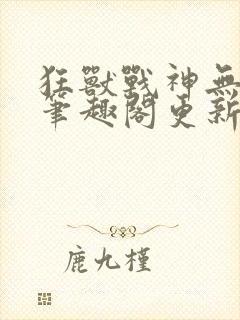 狂獸戰神無
筆趣閣更新
鹿九槿